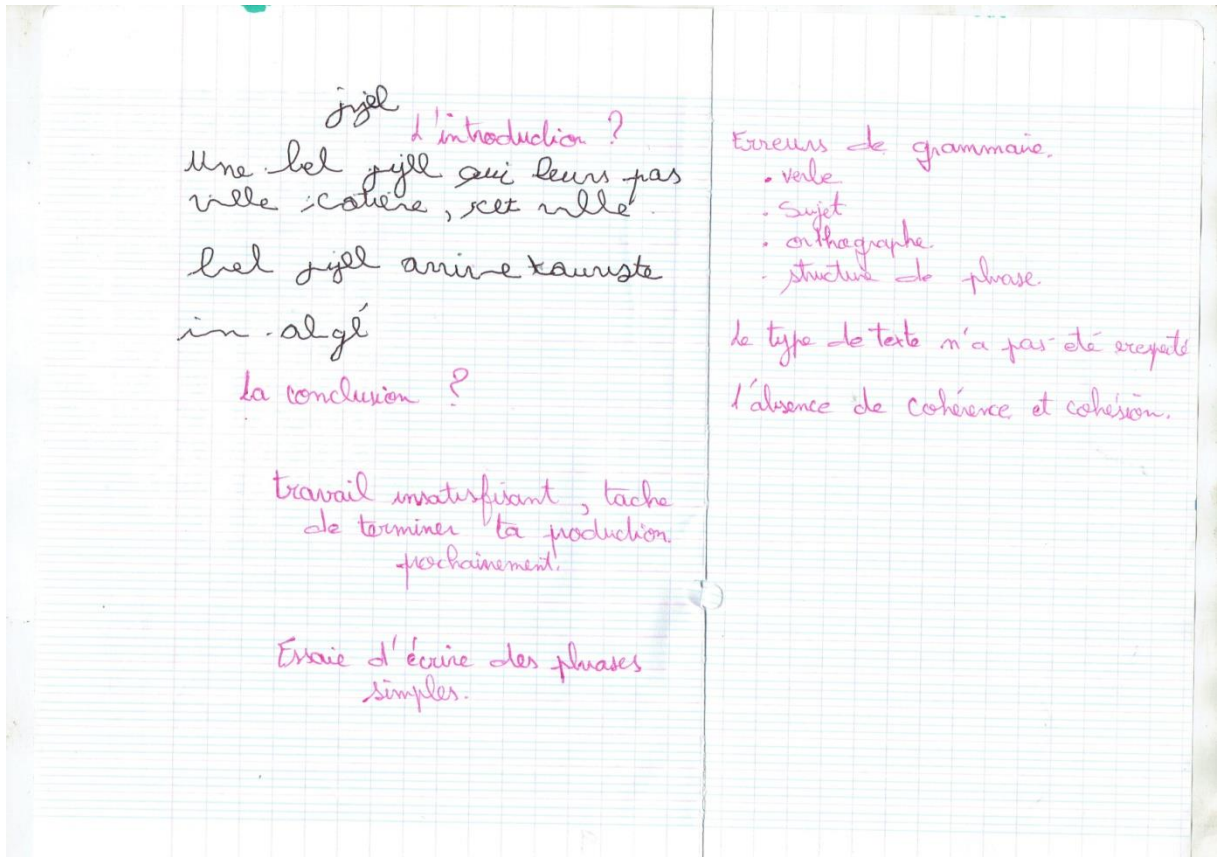 jijel
L'introduction ?
Une bel jijll qui leurs pas
ville icotière, cet ville
bel jijel arrive tauriste
in algé
La conclusion ?
travail insatisfisant, tache
de terminer ta production
prochainement.
Essaie d'écrire des phrases
simples.
Erreurs de grammaire.
. verbe
. Sujet
. orthographe.
. structure de phrase.
Le type de texte n'a pas été respecté
L'absence de cohérence et cohésion.